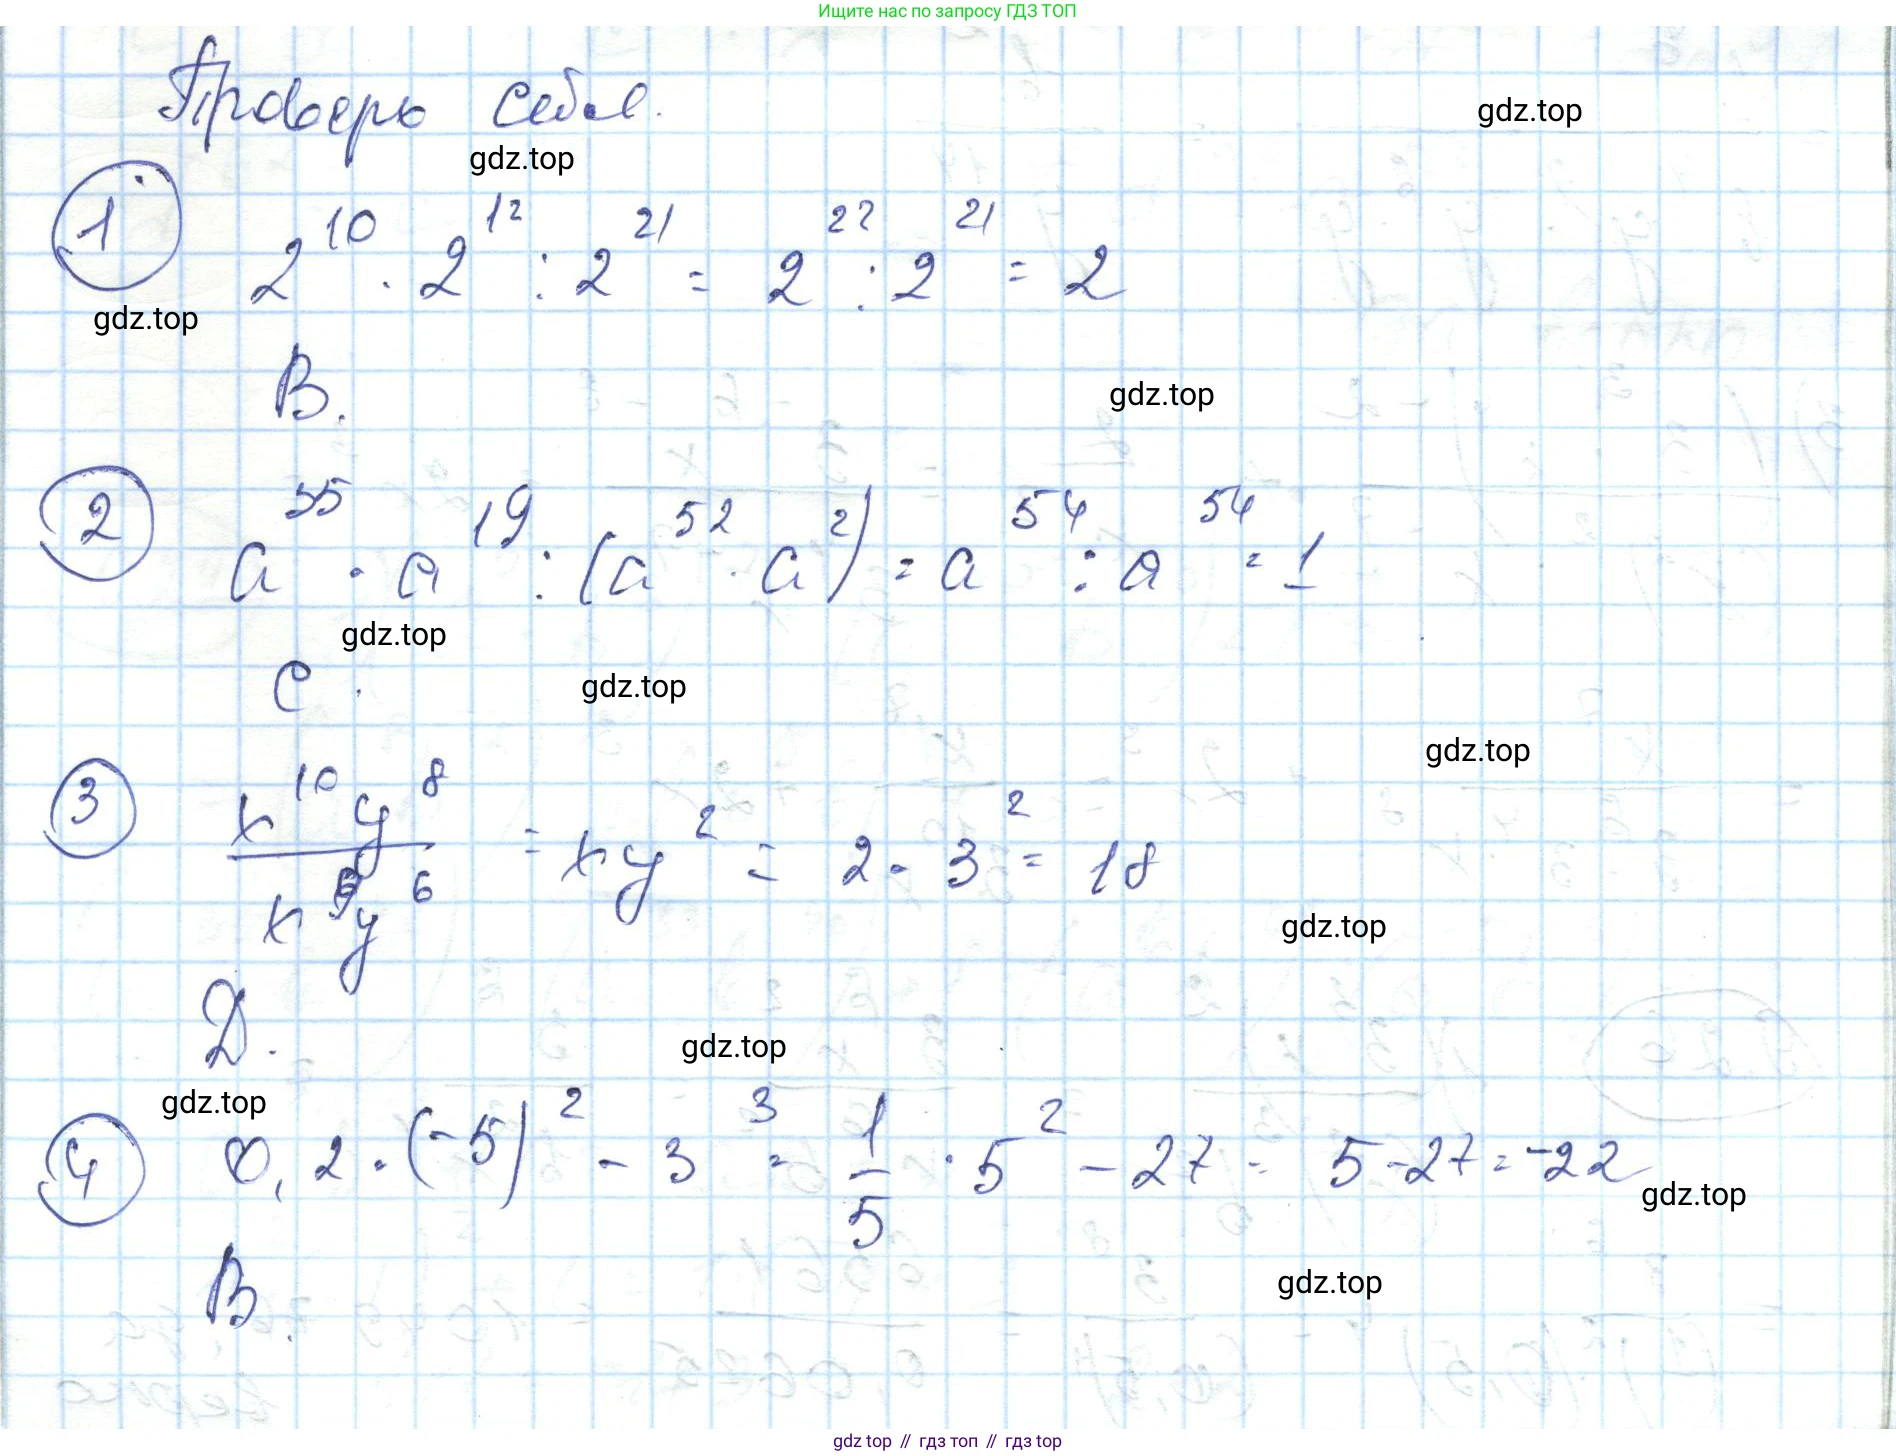 Ищите нас по запросу ГДЗ ТОП
Проверь себя.
gdz.top
gdz.top
1 2^10 · 2^12 : 2^21 = 2^22 : 2^21 = 2
gdz.top
В.
gdz.top
2 a^35 · a^19 : (a^52 · a^2) = a^54 : a^54 = 1
gdz.top
С.
gdz.top
gdz.top
3 x^10 y^8 / x^9 y^6 = xy^2 = 2 · 3^2 = 18
gdz.top
Д.
gdz.top
gdz.top
4 0,2 · (-5)^2 - 3^3 = 1/5 · 5^2 - 27 = 5 - 27 = -22
gdz.top
В.
gdz.top
gdz top // гдз топ // гдз top